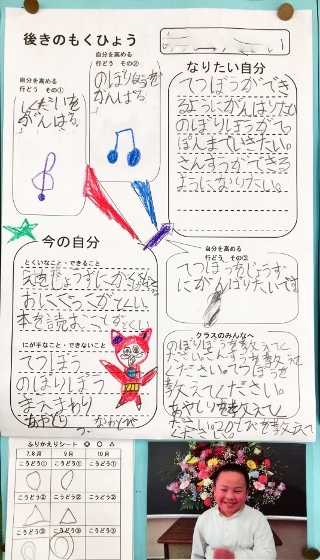 後きのもくひょう
自分を高める
行どう その①
しゅくだいを
がんばる。
自分を高める
行どう その②
のぼりぼうを
がんばる。
なりたい自分
てつぼうができ
るようにがんばりたい
のぼりぼうがてっ
ぺんまでいきたい。
さんすうができる
ようになりたい。
今の自分
とくいなこと・できること
えをじょうずにかくこと
おにごっこがとくい。
本を読む
にが手なこと・できないこと
てつぼう
のぼりぼう
まえまわり
あやとり
自分を高める
行どう その③
てつぼうをじょうず
にがんばりたいです
クラスのみんなへ
のぼりぼうを教えて
ください。さんすうを教えて
ください。てつぼうを
教えてください。
あやとりを教えて
ください。
ふりかえりシート ◎ ○ △
7,8月 9月 10月
こうどう① こうどう① こうどう①
こうどう② こうどう② こうどう②
こうどう③ こうどう③ こうどう③